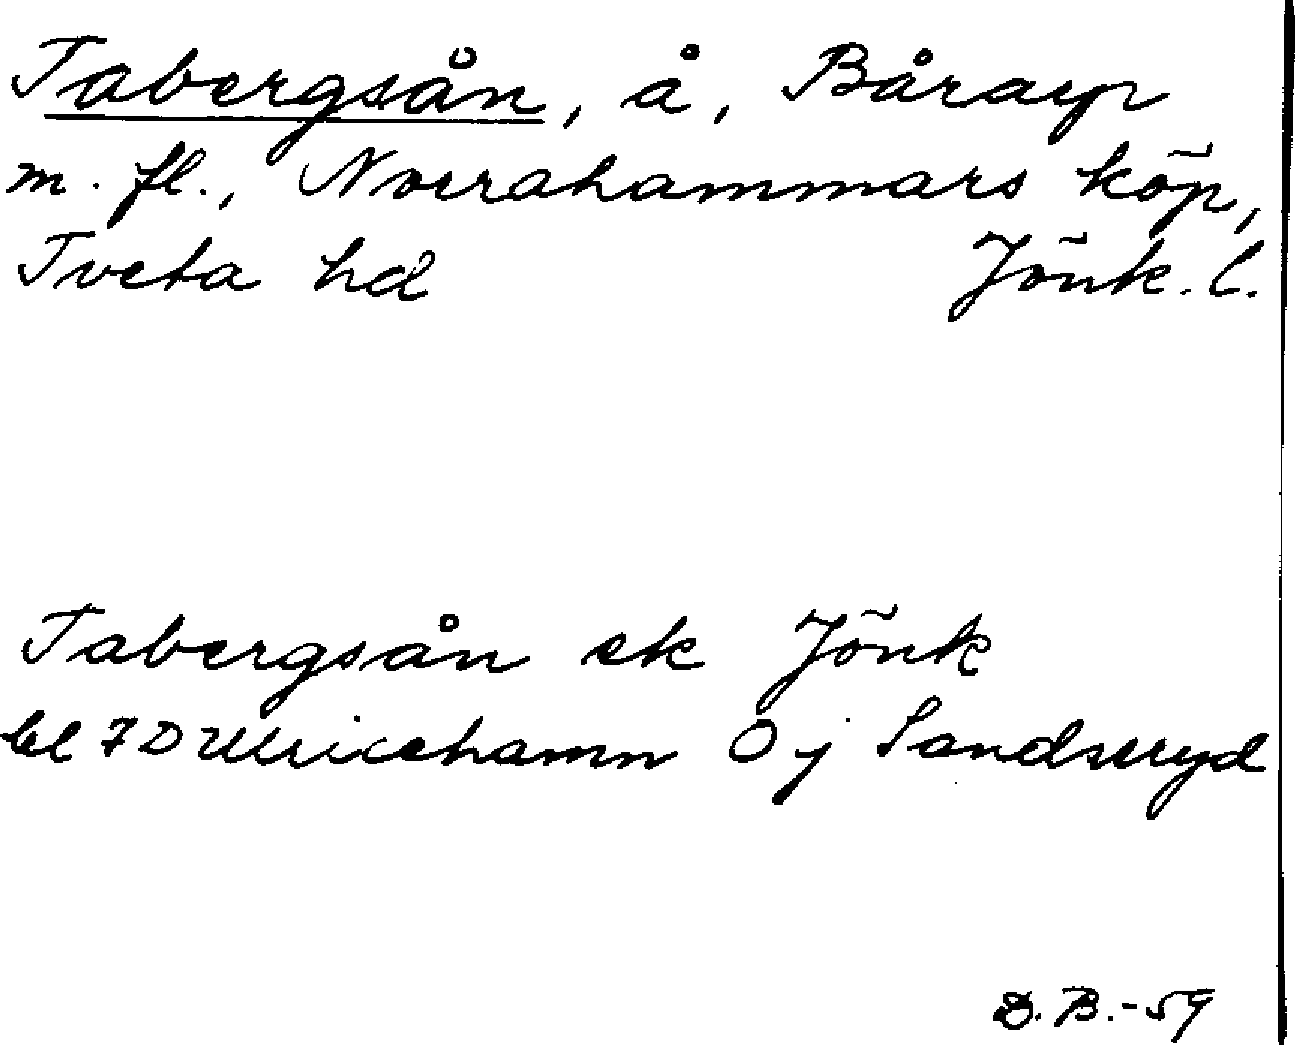 Tabergsån, å, Båraryp
m. fl., Norrahammars köp,
Tveta hd Jönk. l.
Tabergsån ek Jönk
bl 7 D Ulricehamn 0 j Sandseryd
D. B.-59